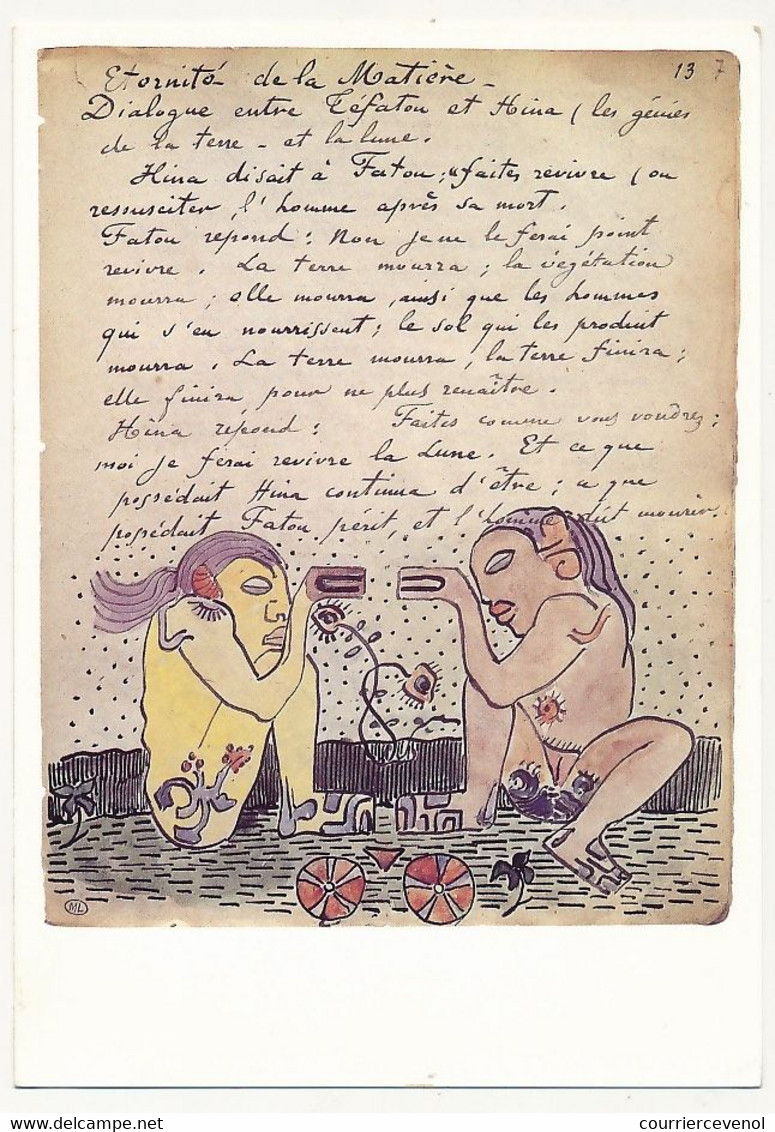 Eternité de la Matière _
13 7
Dialogue entre Téfatou et Hina ( les génies
de la terre _ et la lune.
Hina disait à Fatou ; "faites revivre ( ou
ressusciter , l'homme après sa mort .
Fatou repond : Non je ne le ferai point
revivre . La terre mourra ; la végétation
mourra ; elle mourra , ainsi que les hommes
qui s'en nourrissent ; le sol qui les produit
mourra . La terre mourra , la terre finira ;
elle finira pour ne plus renaître .
Hina répond : Faites comme vous voudrez ;
moi je ferai revivre la Lune . Et ce que
possédait Hina continua d'être ; ce que
possédait Fatou périt , et l'homme dût mourir .
ML
courriercevenol